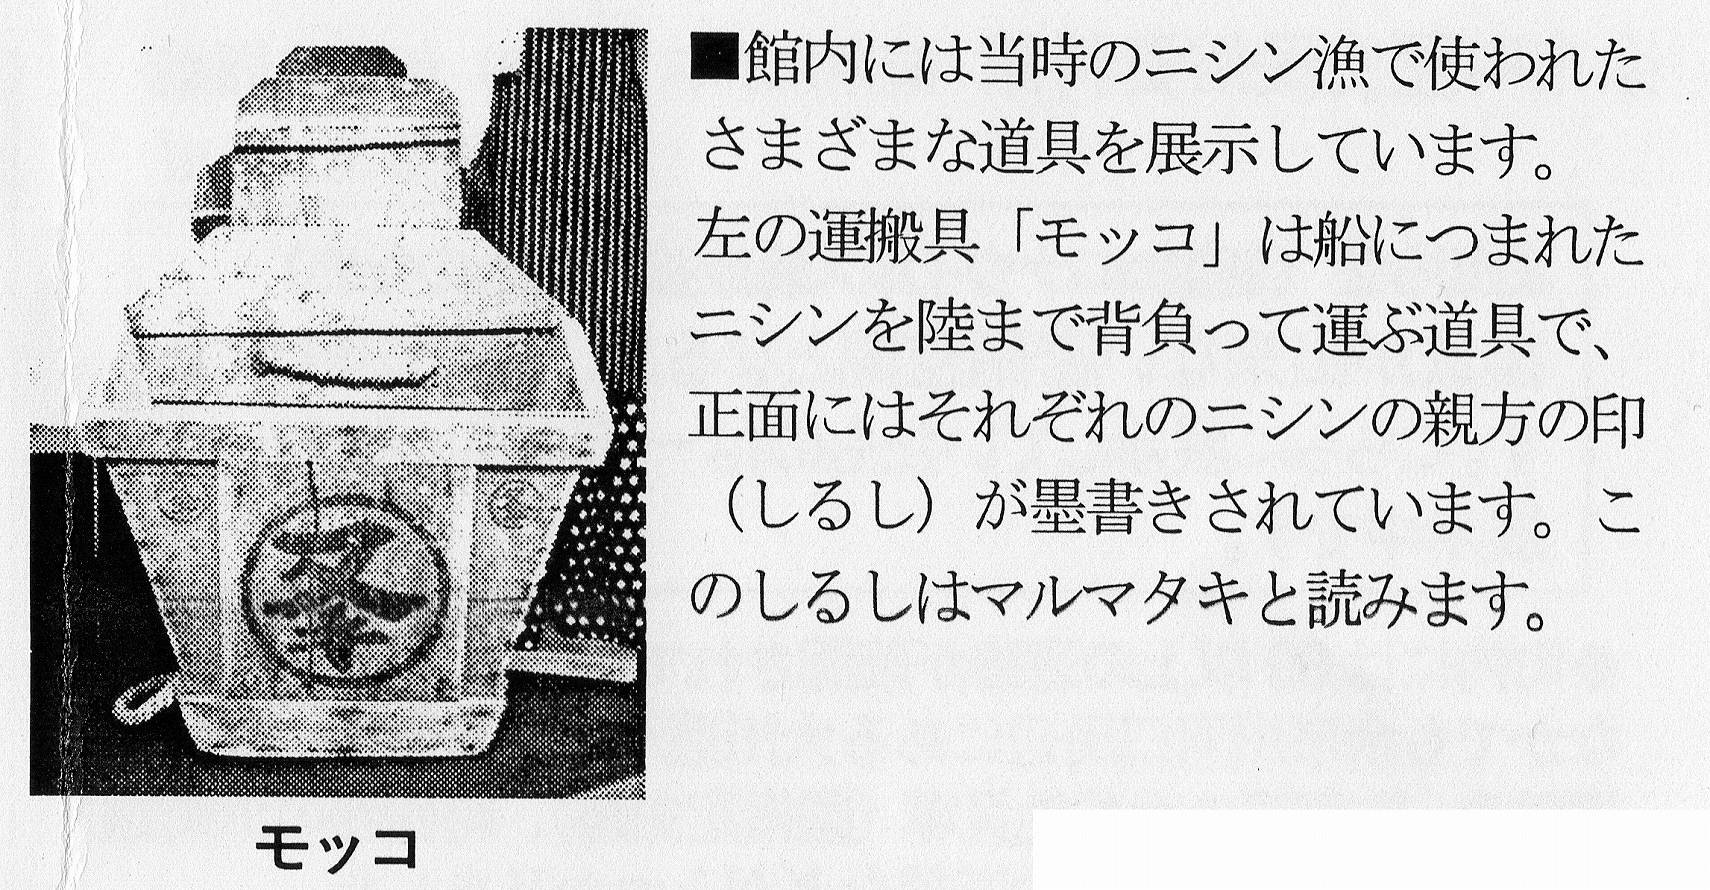 ■館内には当時のニシン漁で使われた
さまざまな道具を展示しています。
左の運搬具「モッコ」は船につまれた
ニシンを陸まで背負って運ぶ道具で、
正面にはそれぞれのニシンの親方の印
（しるし）が墨書きされています。こ
のしるしはマルマタキと読みます。
モッコ